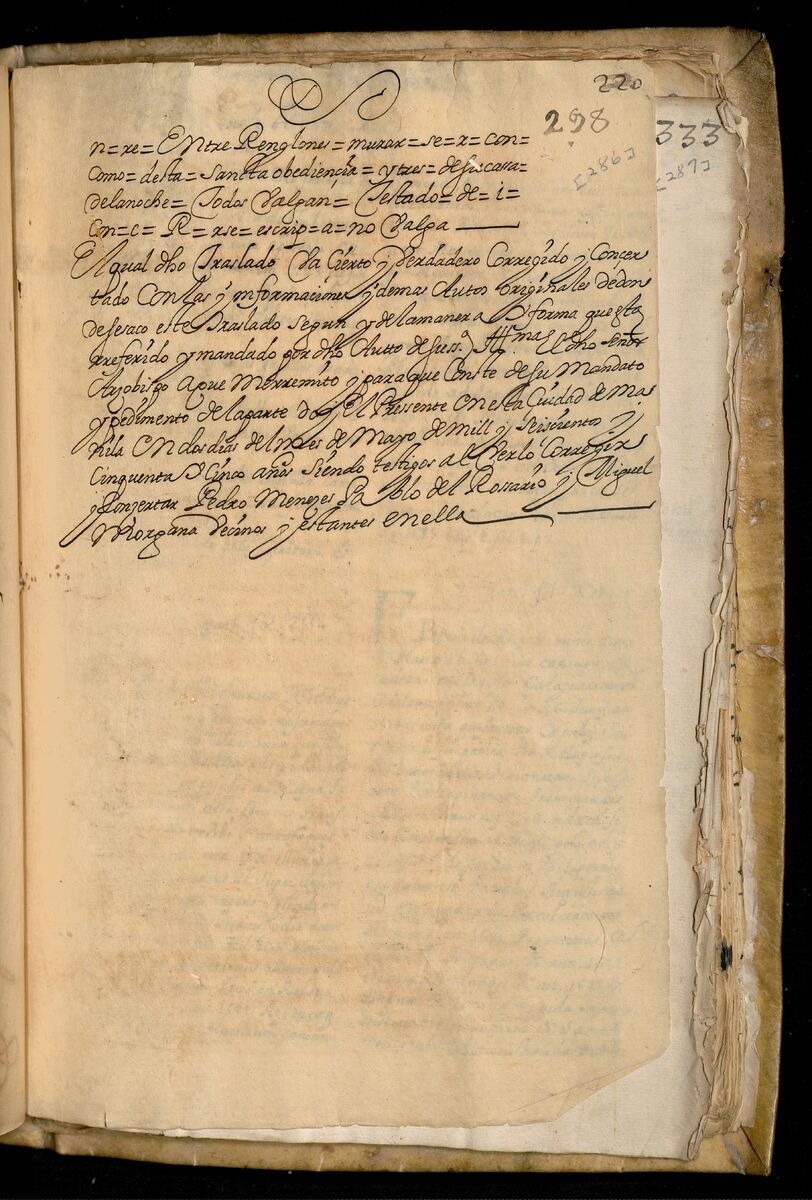 220
298
333
[286]
[287]
n=re= Entre Renglones= murar=se=r=con=
Como= desta= sancta obediençia= y tres= de su cassa=
de la noche= Todos Valgan, Testado= de= i=
Con=c= R= rse= escrip=a=no Valga
El qual dho Traslado Va Çierto y Verdadero Corregido y Concer
tado Con las ynformaciones y demas Autos originales de don
de se saco este Traslado segun y de la manera forma que esta
rreferido y mandado por dho Autto de su ssª Yllma el dho senor
Arzobispo a que me rremito y para que Conste de su Mandato
y pedimento de la parte doy El Pressente En esta Ciudad de Ma
nila En dos dias del mes de Mayo de mill y seiscientos y
Cinquenta y Cinco años siendo testigos a l Verlo Corregir
y Conzertar Pedro Menezes Pablo del Rossario y Miguel
Morgana Vecinos y estantes en ella